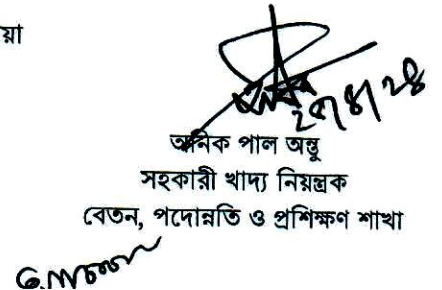 য়া
২৫/৪/২৪
অনিক পাল অন্তু
সহকারী খাদ্য নিয়ন্ত্রক
বেতন, পদোন্নতি ও প্রশিক্ষণ শাখা